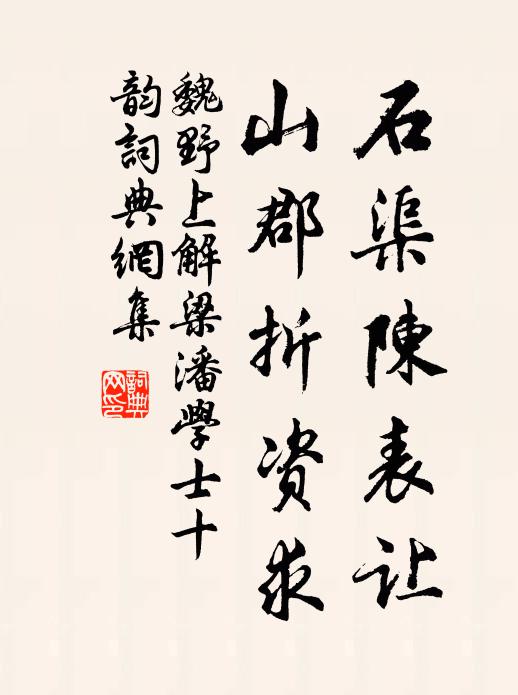 石渠陳表让
山郡折资求
魏野上解梁潘學士十
韵詞典網集
詞典
网印